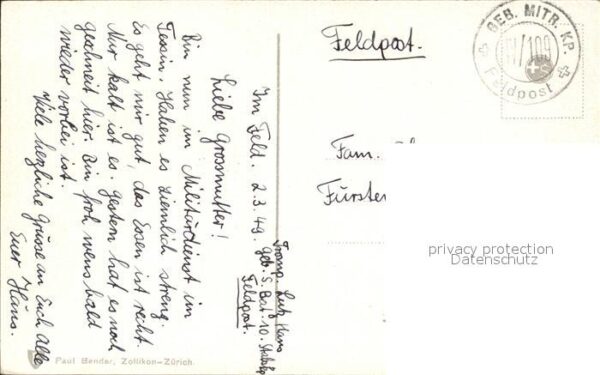 Im Feld. 2.3.49.
Liebe Grossmutter!
Bin nun im Militärdienst im
Tessin. Haben es ziemlich streng.
Es geht mir gut, das Essen ist recht.
Nur kalt ist es. Gestern hat es noch
geschneit hier. Bin froh wens bald
wieder vorbei ist.
Viele herzliche Grüsse an Euch Alle
Euer Hans.
Hans
Geb. S. Bat. 10.
Feldpost.
Feldpost.
GEB. MITR. KP.
IV/109
Feldpost
Fam.
Fürste
privacy protection
Datenschutz
Paul Bender, Zollikon-Zürich.